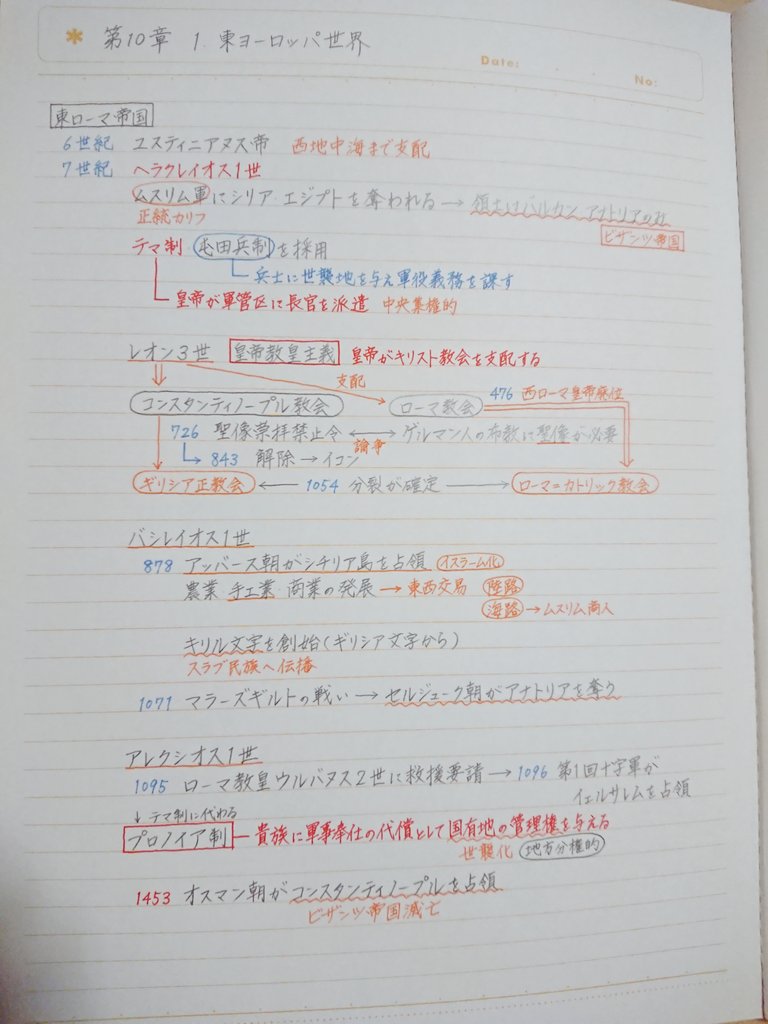 第10章 1. 東ヨーロッパ世界
Date:
No:
東ローマ帝国
6世紀 ユスティニアヌス帝 西地中海まで支配
7世紀 ヘラクレイオス1世
ムスリム軍にシリア・エジプトを奪われる → 領土はバルカン アナトリアのみ
正統カリフ ビザンツ帝国
テマ制 屯田兵制を採用
兵士に世襲地を与え軍役義務を課す
皇帝が軍管区に長官を派遣 中央集権的
レオン3世 皇帝教皇主義 皇帝がキリスト教会を支配する
支配
コンスタンティノープル教会 ローマ教会 476 西ローマ皇帝廃位
726 聖像崇拝禁止令 ←→ ゲルマン人の布教に聖像が必要
論争
843 解除 → イコン
ギリシア正教会 ← 1054 分裂が確定 → ローマ=カトリック教会
バシレイオス1世
878 アッバース朝がシチリア島を占領 イスラーム化
農業・手工業・商業の発展 → 東西交易 陸路
海路 → ムスリム商人
キリル文字を創始(ギリシア文字から)
スラブ民族へ伝播
1071 マラーズギルトの戦い → セルジューク朝がアナトリアを奪う
アレクシオス1世
1095 ローマ教皇ウルバヌス2世に救援要請 → 1096 第1回十字軍が
イェルサレムを占領
↓ テマ制に代わる
プロノイア制 貴族に軍事奉仕の代償として国有地の管理権を与える
世襲化 地方分権的
1453 オスマン朝がコンスタンティノープルを占領
ビザンツ帝国滅亡